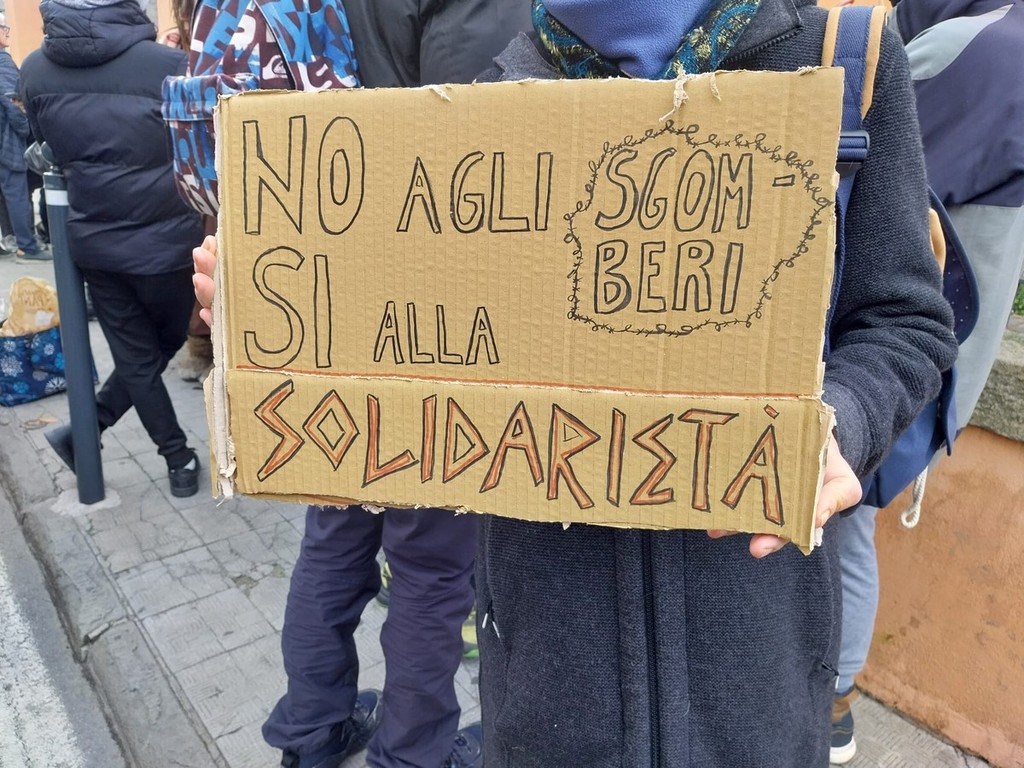 NO AGLI SGOM-
BERI
SI ALLA
SOLIDARIETÀ